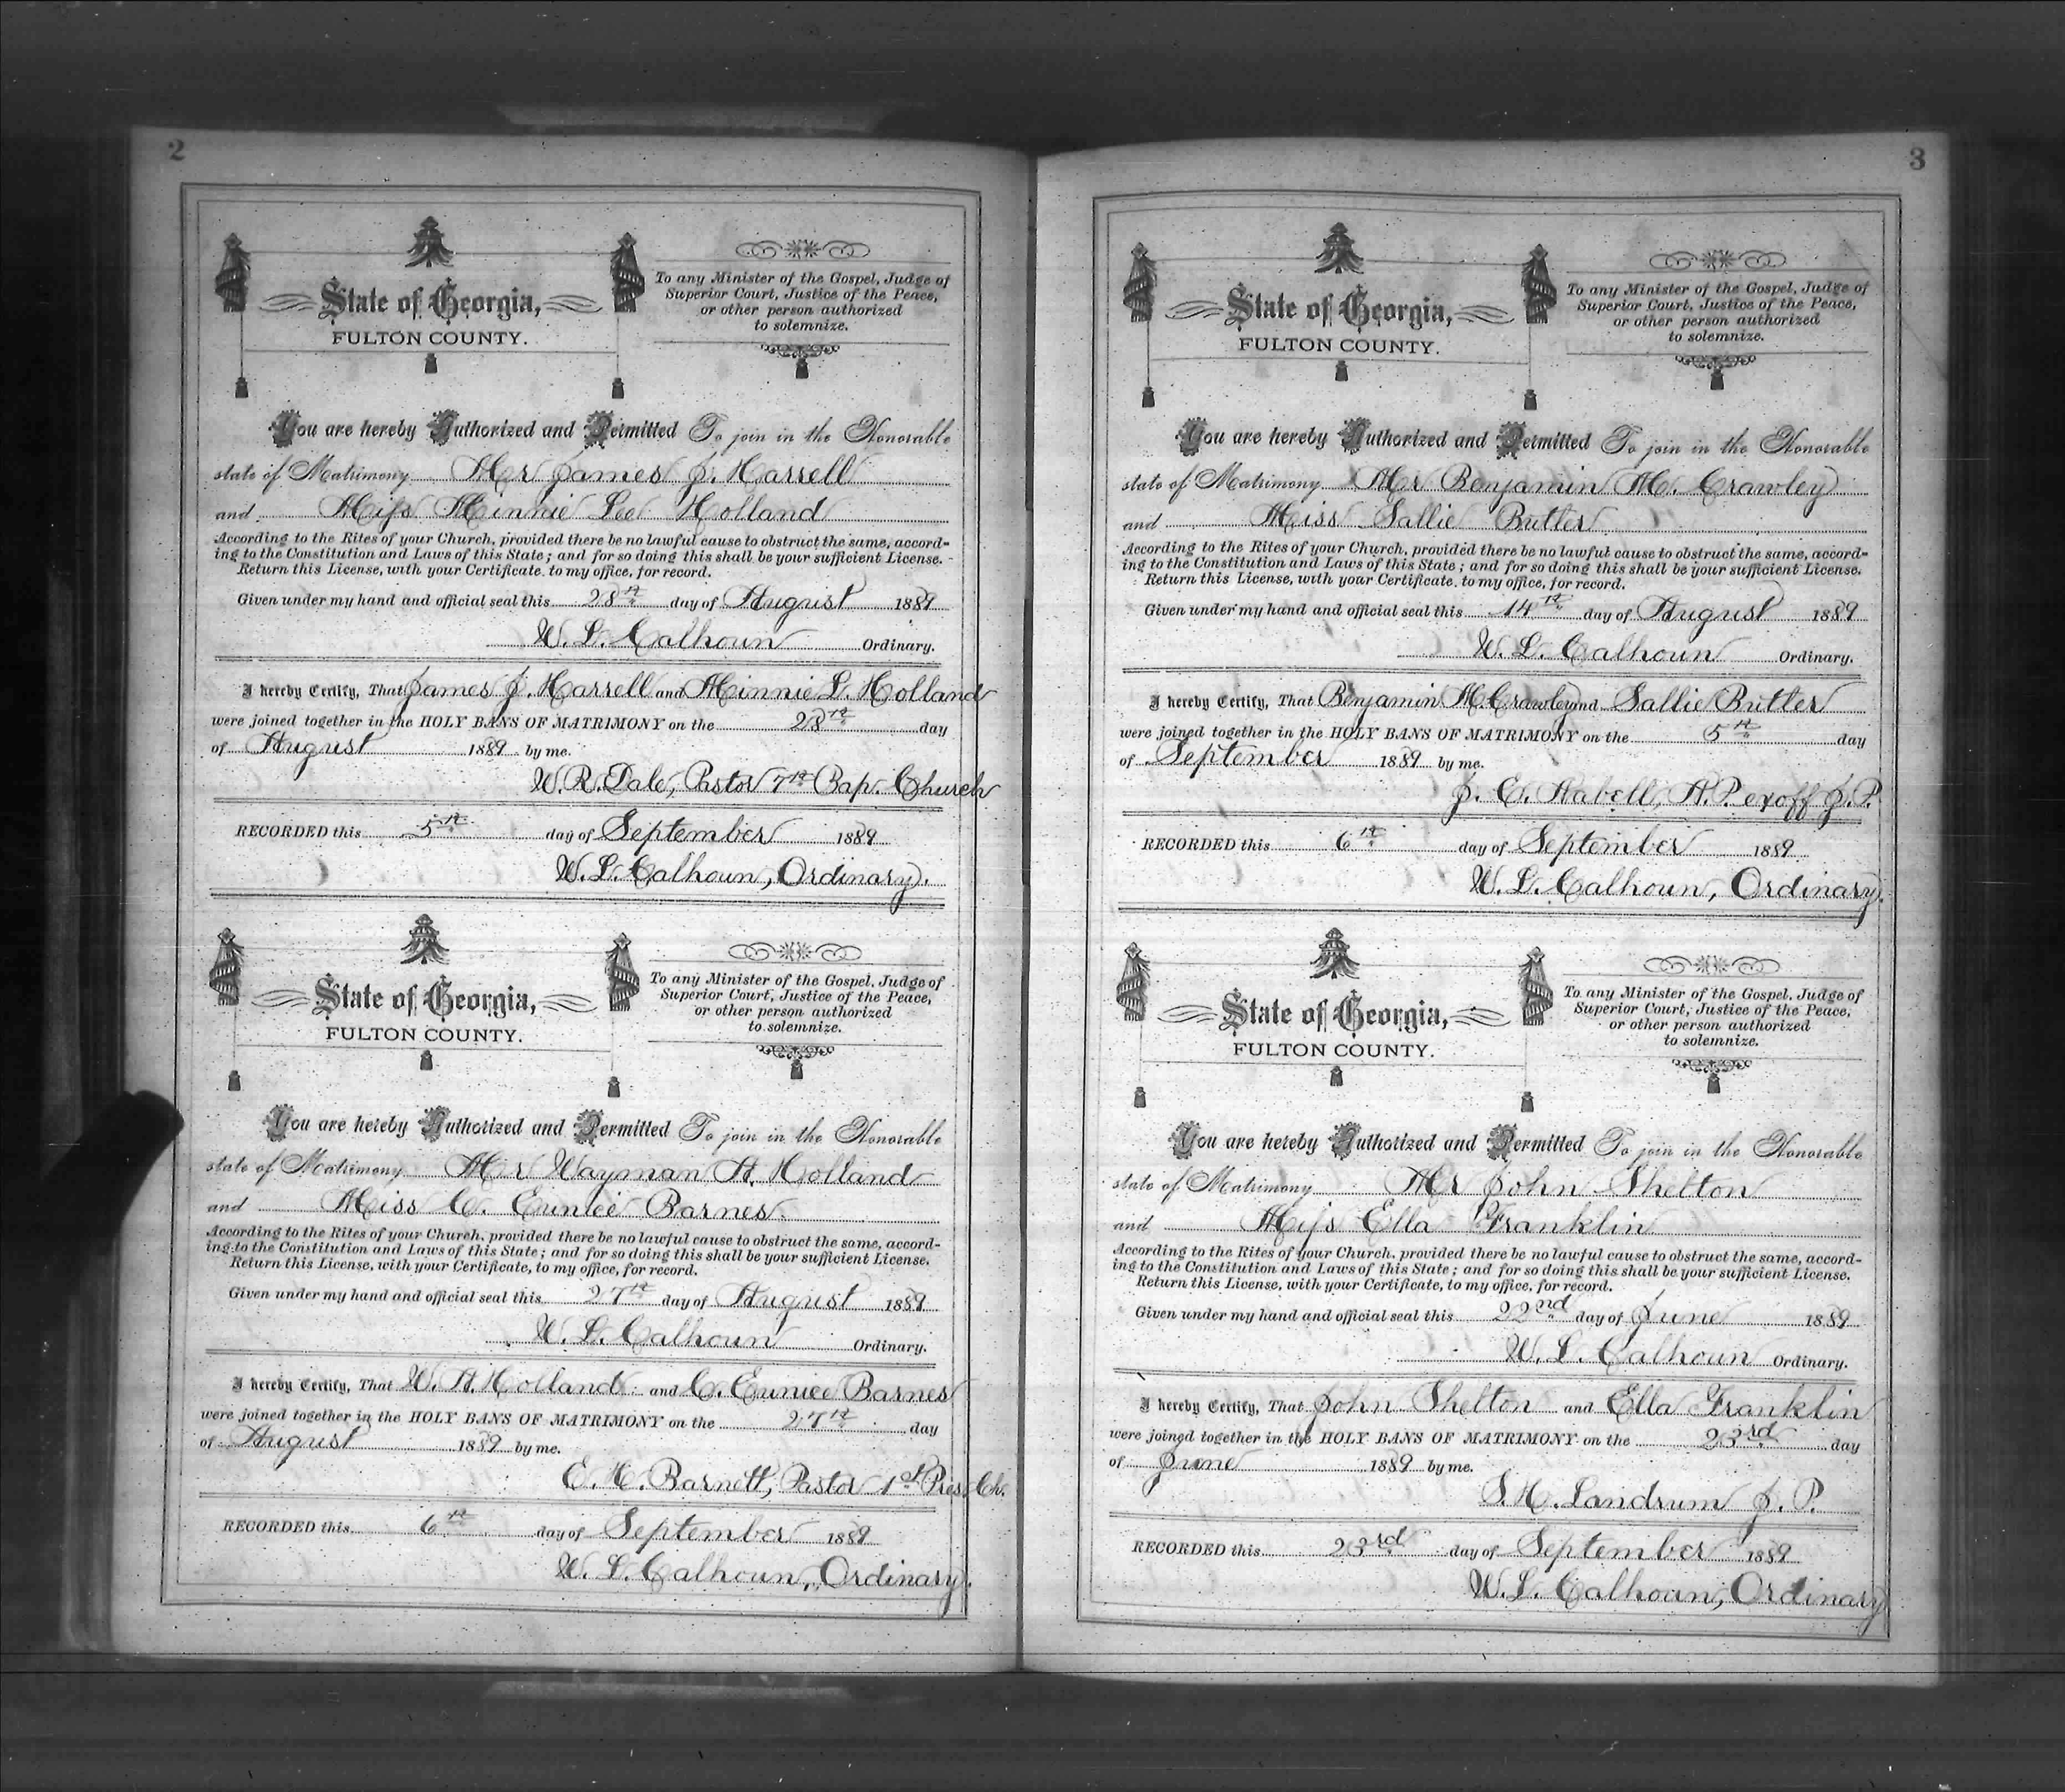 2
State of Georgia,
FULTON COUNTY.
To any Minister of the Gospel, Judge of
Superior Court, Justice of the Peace,
or other person authorized
to solemnize.
You are hereby Authorized and Permitted To join in the Honorable
state of Matrimony Mr James J. Harrell
and Miss Minnie Lee Holland
According to the Rites of your Church, provided there be no lawful cause to obstruct the same, accord-
ing to the Constitution and Laws of this State; and for so doing this shall be your sufficient License.
Return this License, with your Certificate, to my office, for record.
Given under my hand and official seal this 28th day of August 1889
W. L. Calhoun Ordinary.
I hereby Certify, That James J. Harrell and Minnie L. Holland
were joined together in the HOLY BANS OF MATRIMONY on the 28th day
of August 1889 by me.
W. R. Dale, Pastor 7th Bap. Church
RECORDED this 5th day of September 1889
W. L. Calhoun, Ordinary.
State of Georgia,
FULTON COUNTY.
To any Minister of the Gospel, Judge of
Superior Court, Justice of the Peace,
or other person authorized
to solemnize.
You are hereby Authorized and Permitted To join in the Honorable
state of Matrimony Mr Wayman A. Holland
and Miss C. Eunice Barnes.
According to the Rites of your Church, provided there be no lawful cause to obstruct the same, accord-
ing to the Constitution and Laws of this State; and for so doing this shall be your sufficient License.
Return this License, with your Certificate, to my office, for record.
Given under my hand and official seal this 27th day of August 1889
W. L. Calhoun Ordinary.
I hereby Certify, That W. A. Holland and C. Eunice Barnes
were joined together in the HOLY BANS OF MATRIMONY on the 27th day
of August 1889 by me.
E. H. Barnett, Pastor 1st Pres. Ch.
RECORDED this 6th day of September 1889
W. L. Calhoun, Ordinary.
3
State of Georgia,
FULTON COUNTY.
To any Minister of the Gospel, Judge of
Superior Court, Justice of the Peace,
or other person authorized
to solemnize.
You are hereby Authorized and Permitted To join in the Honorable
state of Matrimony Mr Benjamin M. Crawley
and Miss Sallie Butler
According to the Rites of your Church, provided there be no lawful cause to obstruct the same, accord-
ing to the Constitution and Laws of this State; and for so doing this shall be your sufficient License.
Return this License, with your Certificate, to my office, for record.
Given under my hand and official seal this 14th day of August 1889
W. L. Calhoun Ordinary.
I hereby Certify, That Benjamin M. Crawley and Sallie Butler
were joined together in the HOLY BANS OF MATRIMONY on the 5th day
of September 1889 by me.
J. C. N.P. exoff J.P.
RECORDED this 6th day of September 1889
W. L. Calhoun, Ordinary.
State of Georgia,
FULTON COUNTY.
To any Minister of the Gospel, Judge of
Superior Court, Justice of the Peace,
or other person authorized
to solemnize.
You are hereby Authorized and Permitted To join in the Honorable
state of Matrimony Mr John Shelton
and Miss Ella Franklin
According to the Rites of your Church, provided there be no lawful cause to obstruct the same, accord-
ing to the Constitution and Laws of this State; and for so doing this shall be your sufficient License.
Return this License, with your Certificate, to my office, for record.
Given under my hand and official seal this 22nd day of June 1889
W. L. Calhoun Ordinary.
I hereby Certify, That John Shelton and Ella Franklin
were joined together in the HOLY BANS OF MATRIMONY on the 23rd day
of June 1889 by me.
S. H. Landrum J. P.
RECORDED this 23rd day of September 1889
W. L. Calhoun, Ordinary